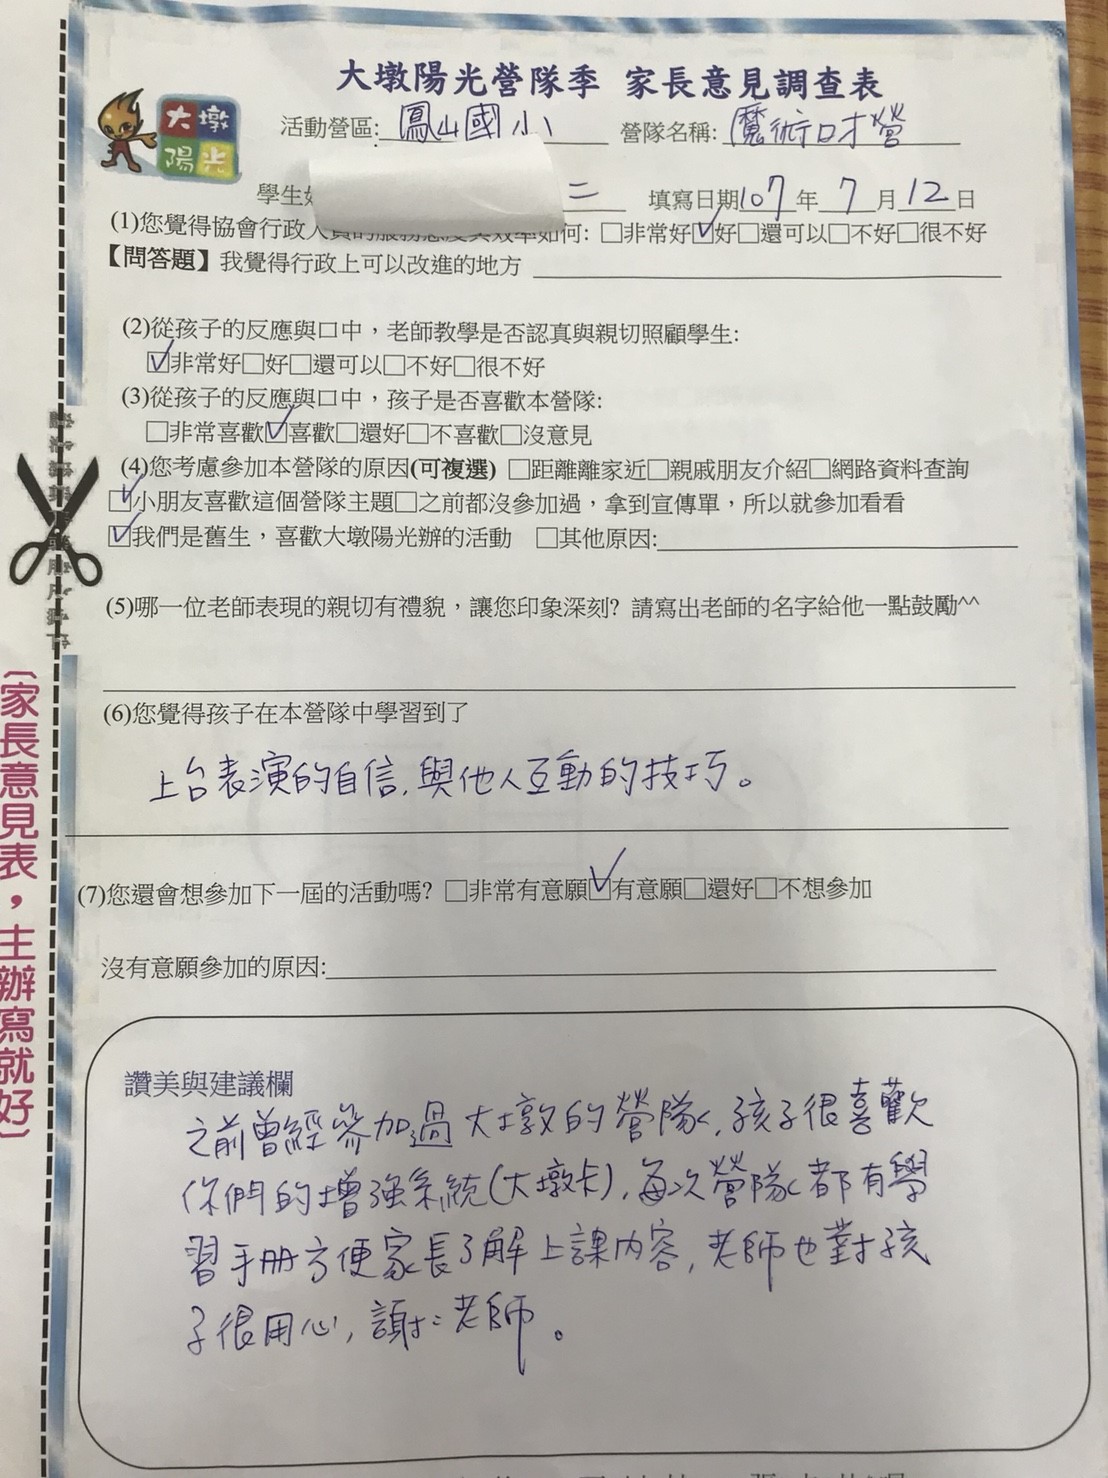 大墩陽光營隊季 家長意見調查表
大墩
陽光
活動營區: 鳳山國小 營隊名稱: 魔術口才營
學生 二 填寫日期107年7月12日
(1)您覺得協會行政人員的服務態度與效率如何: □非常好☑好□還可以□不好□很不好
【問答題】我覺得行政上可以改進的地方
(2)從孩子的反應與口中，老師教學是否認真與親切照顧學生:
☑非常好□好□還可以□不好□很不好
(3)從孩子的反應與口中，孩子是否喜歡本營隊:
□非常喜歡☑喜歡□還好□不喜歡□沒意見
(4)您考慮參加本營隊的原因(可複選) □距離離家近□親戚朋友介紹□網路資料查詢
☑小朋友喜歡這個營隊主題□之前都沒參加過，拿到宣傳單，所以就參加看看
☑我們是舊生，喜歡大墩陽光辦的活動 □其他原因:
(5)哪一位老師表現的親切有禮貌，讓您印象深刻? 請寫出老師的名字給他一點鼓勵^^
(6)您覺得孩子在本營隊中學習到了
上台表演的自信,與他人互動的技巧。
(7)您還會想參加下一屆的活動嗎? □非常有意願☑有意願□還好□不想參加
沒有意願參加的原因:
讚美與建議欄
之前曾經參加過大墩的營隊,孩子很喜歡
你們的增強系統(大墩卡),每次營隊都有學
習手冊方便家長了解上課內容,老師也對孩
子很用心,謝:老師。
〔家長意見表，主辦寫就好〕